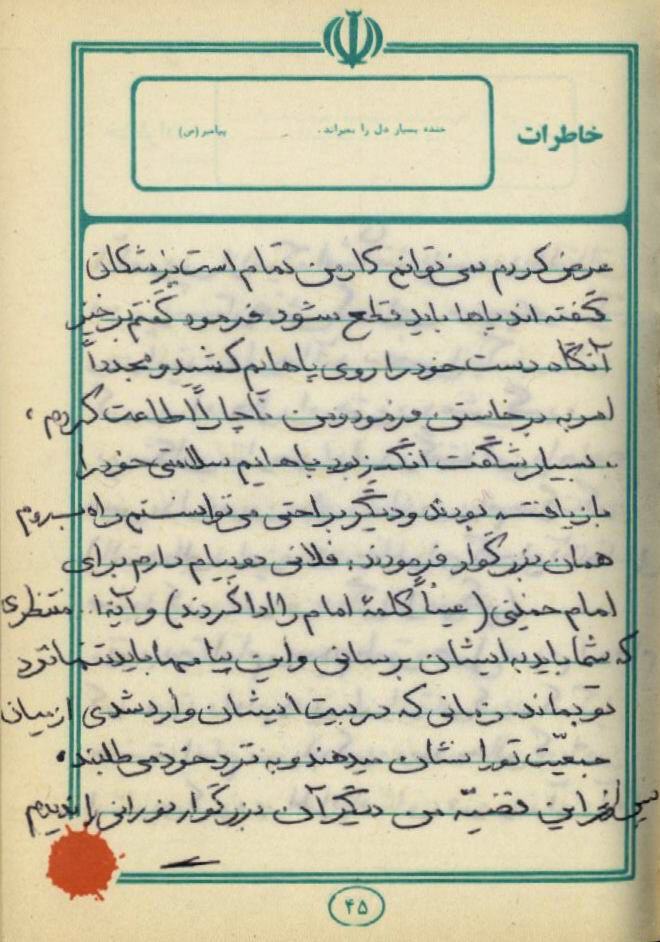 خاطرات
خنده بسیار دل را بمیراند. پیامبر (ص)
عرض کردم نمی توانم کار من تمام است پزشکان
گفته اند پاها باید قطع شود فرمود گفتم برخیز
آنگاه دست خود را روی پاهایم کشید و مجدداً
امر به برخاستن فرمود و من ناچاراً اطاعت کردم،
. بسیار شگفت انگیز بود پاهایم سلامتی خود را
بازیافته بودند و دیگر براحتی می توانستم راه بروم
همان بزرگوار فرمودند: فلانی دو پیام دارم برای
امام خمینی (عیناً کلمهٔ امام را ادا کردند) و آیة ا.. منتظری
که شما باید به ایشان برسانی و این پیامها باید تنها نزد
تو بماند. زمانی که در بیت ایشان وارد شدی از میان
جمعیّت تو را نشان میدهند و به نزد خود می طلبند.
از این قضیّه من دیگر آن بزرگوار نورانی را ندیدم
۴۵